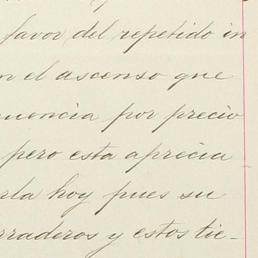 favor del repetido in
n el ascenso que
uencia por precio
pero esta aprecia
rla hoy pues su
rraderos y estos tie-